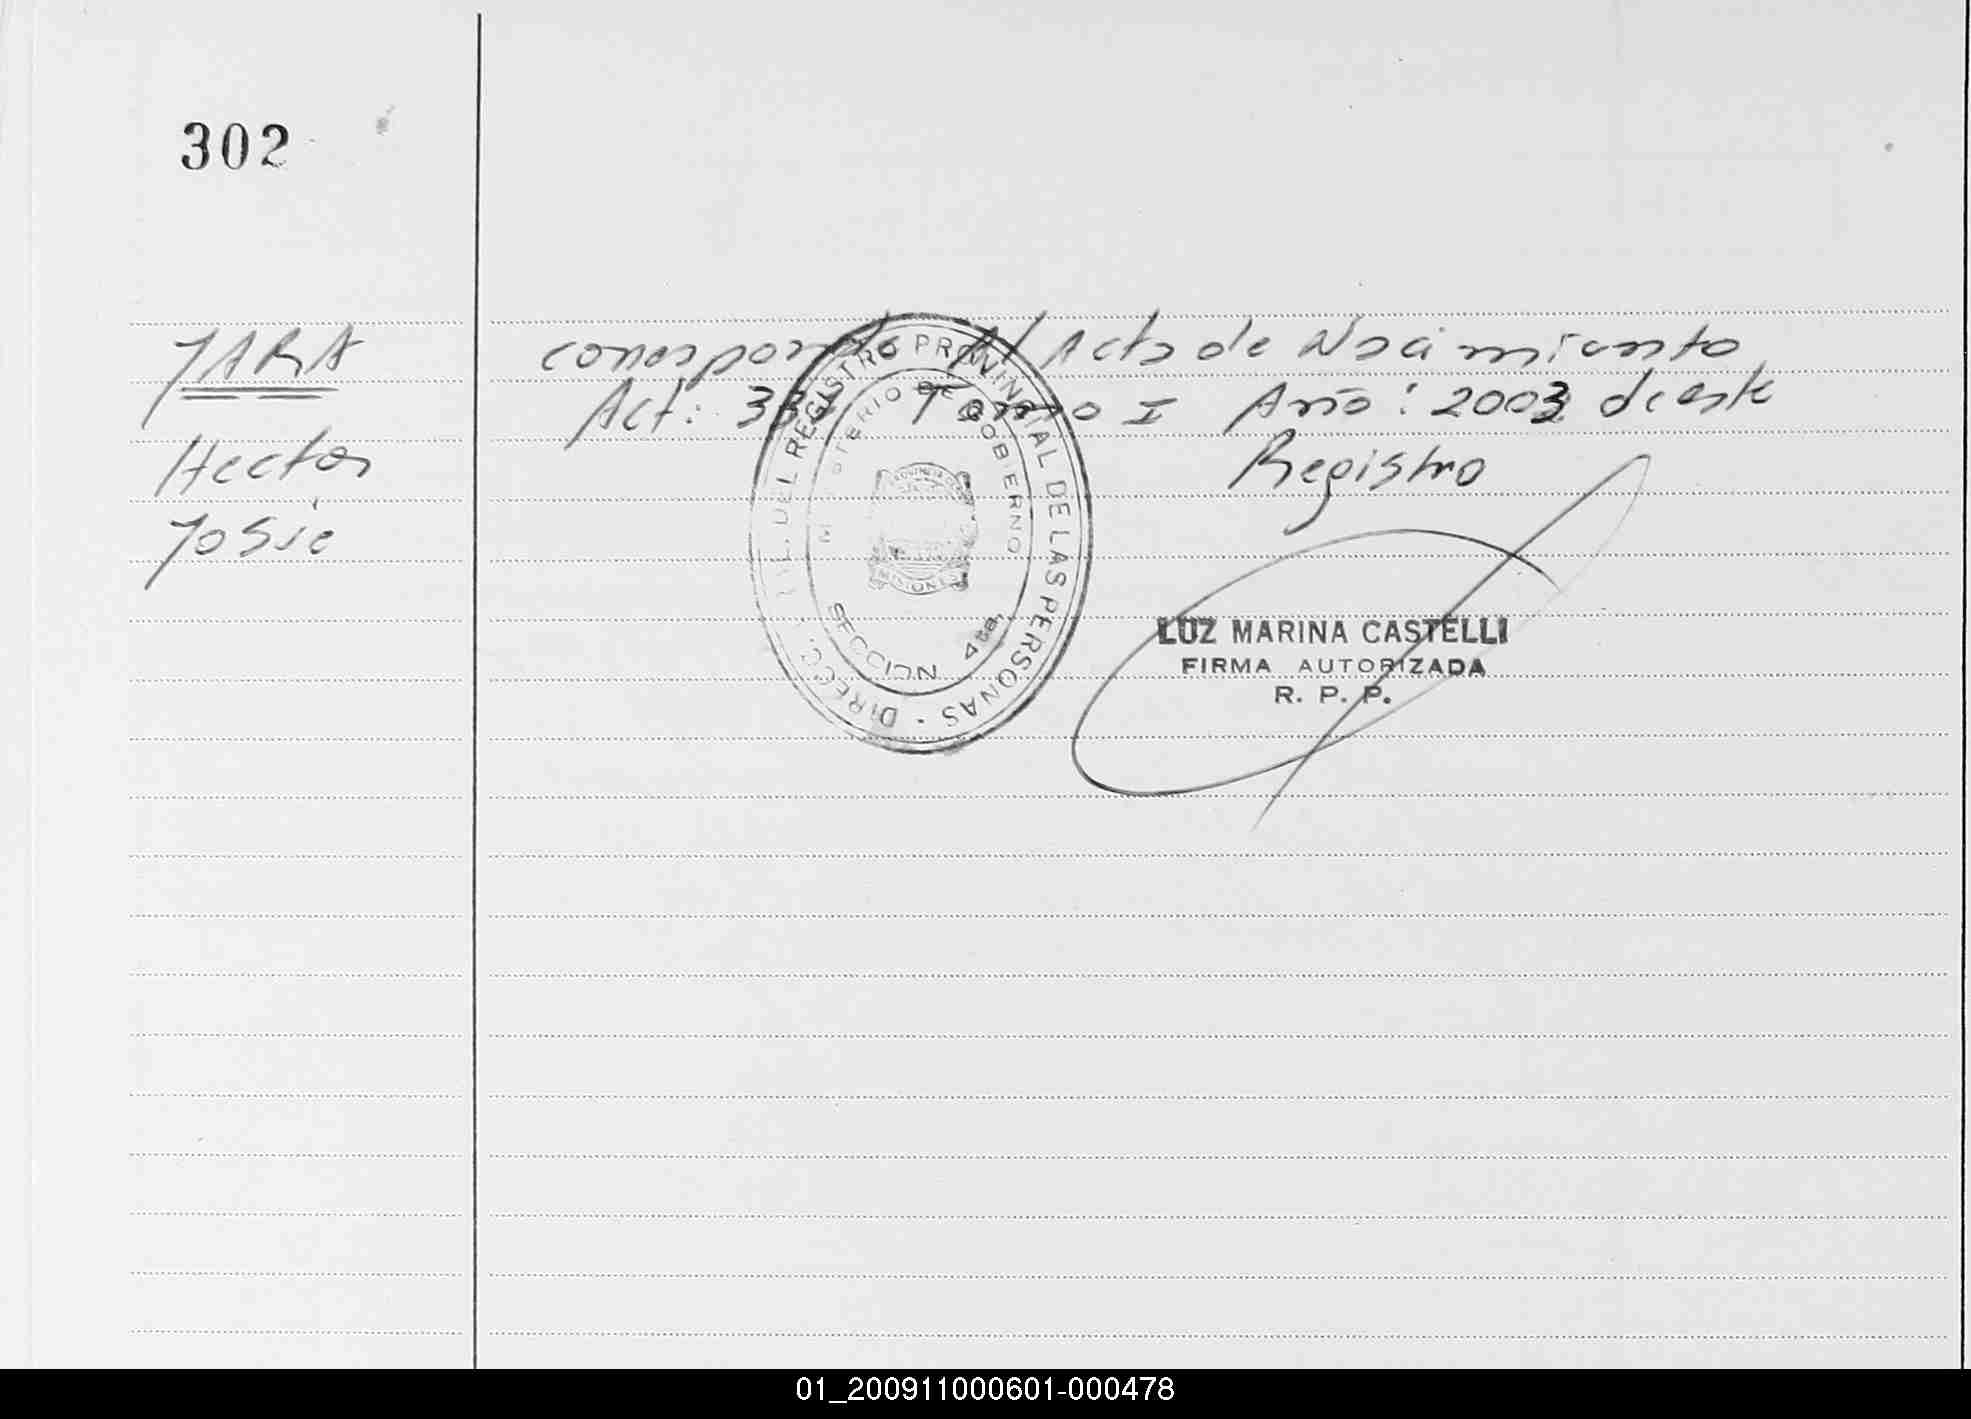 302
JARA
Hector
Josie
corresponde Al Acta de Nacimiento
Act: Tomo I Año: 2003 de este
Registro
DIRECC. DEL REGISTRO PROVINCIAL DE LAS PERSONAS
MINISTERIO DE GOBIERNO
PROVINCIA DE
MISIONES
SECCION 4ta.
LUZ MARINA CASTELLI
FIRMA AUTORIZADA
R. P. P.
01_200911000601-000478